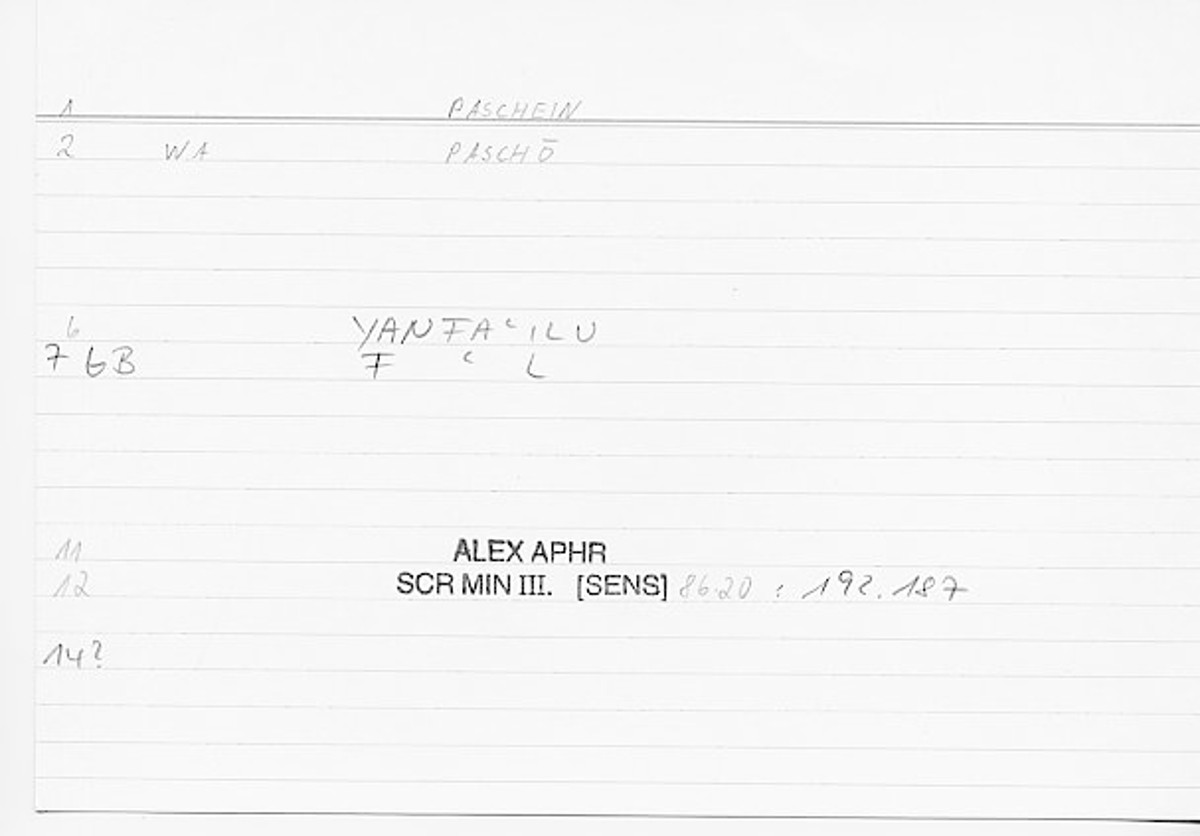 1 PASCHEIN
2 WA PASCHŌ
6 YANFAʿILU
7 6B F ʿ L
11 ALEX APHR
12 SCR MIN III. [SENS] 86.20 : 192.187
14?